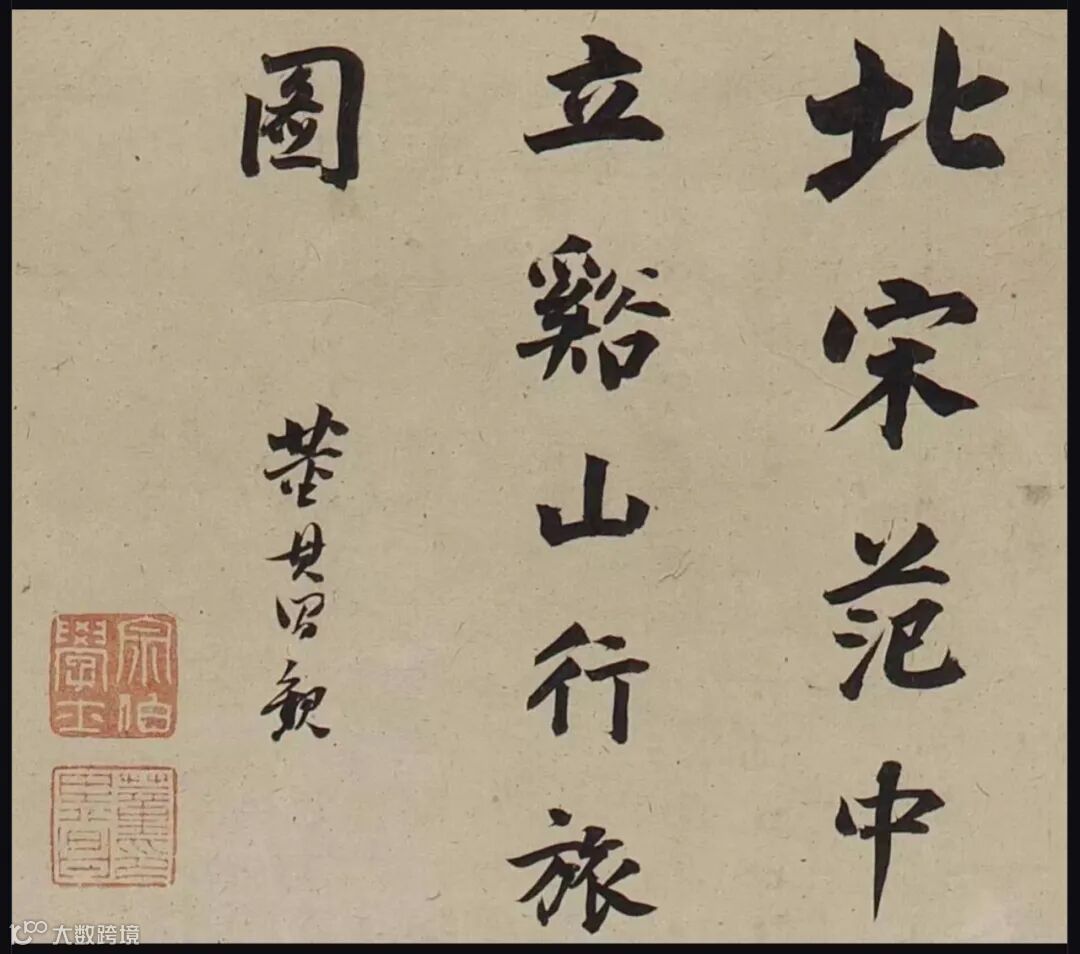 北宋范中
立谿山行旅
圖
董其昌觀
宗伯學士
董其昌印
大数跨境